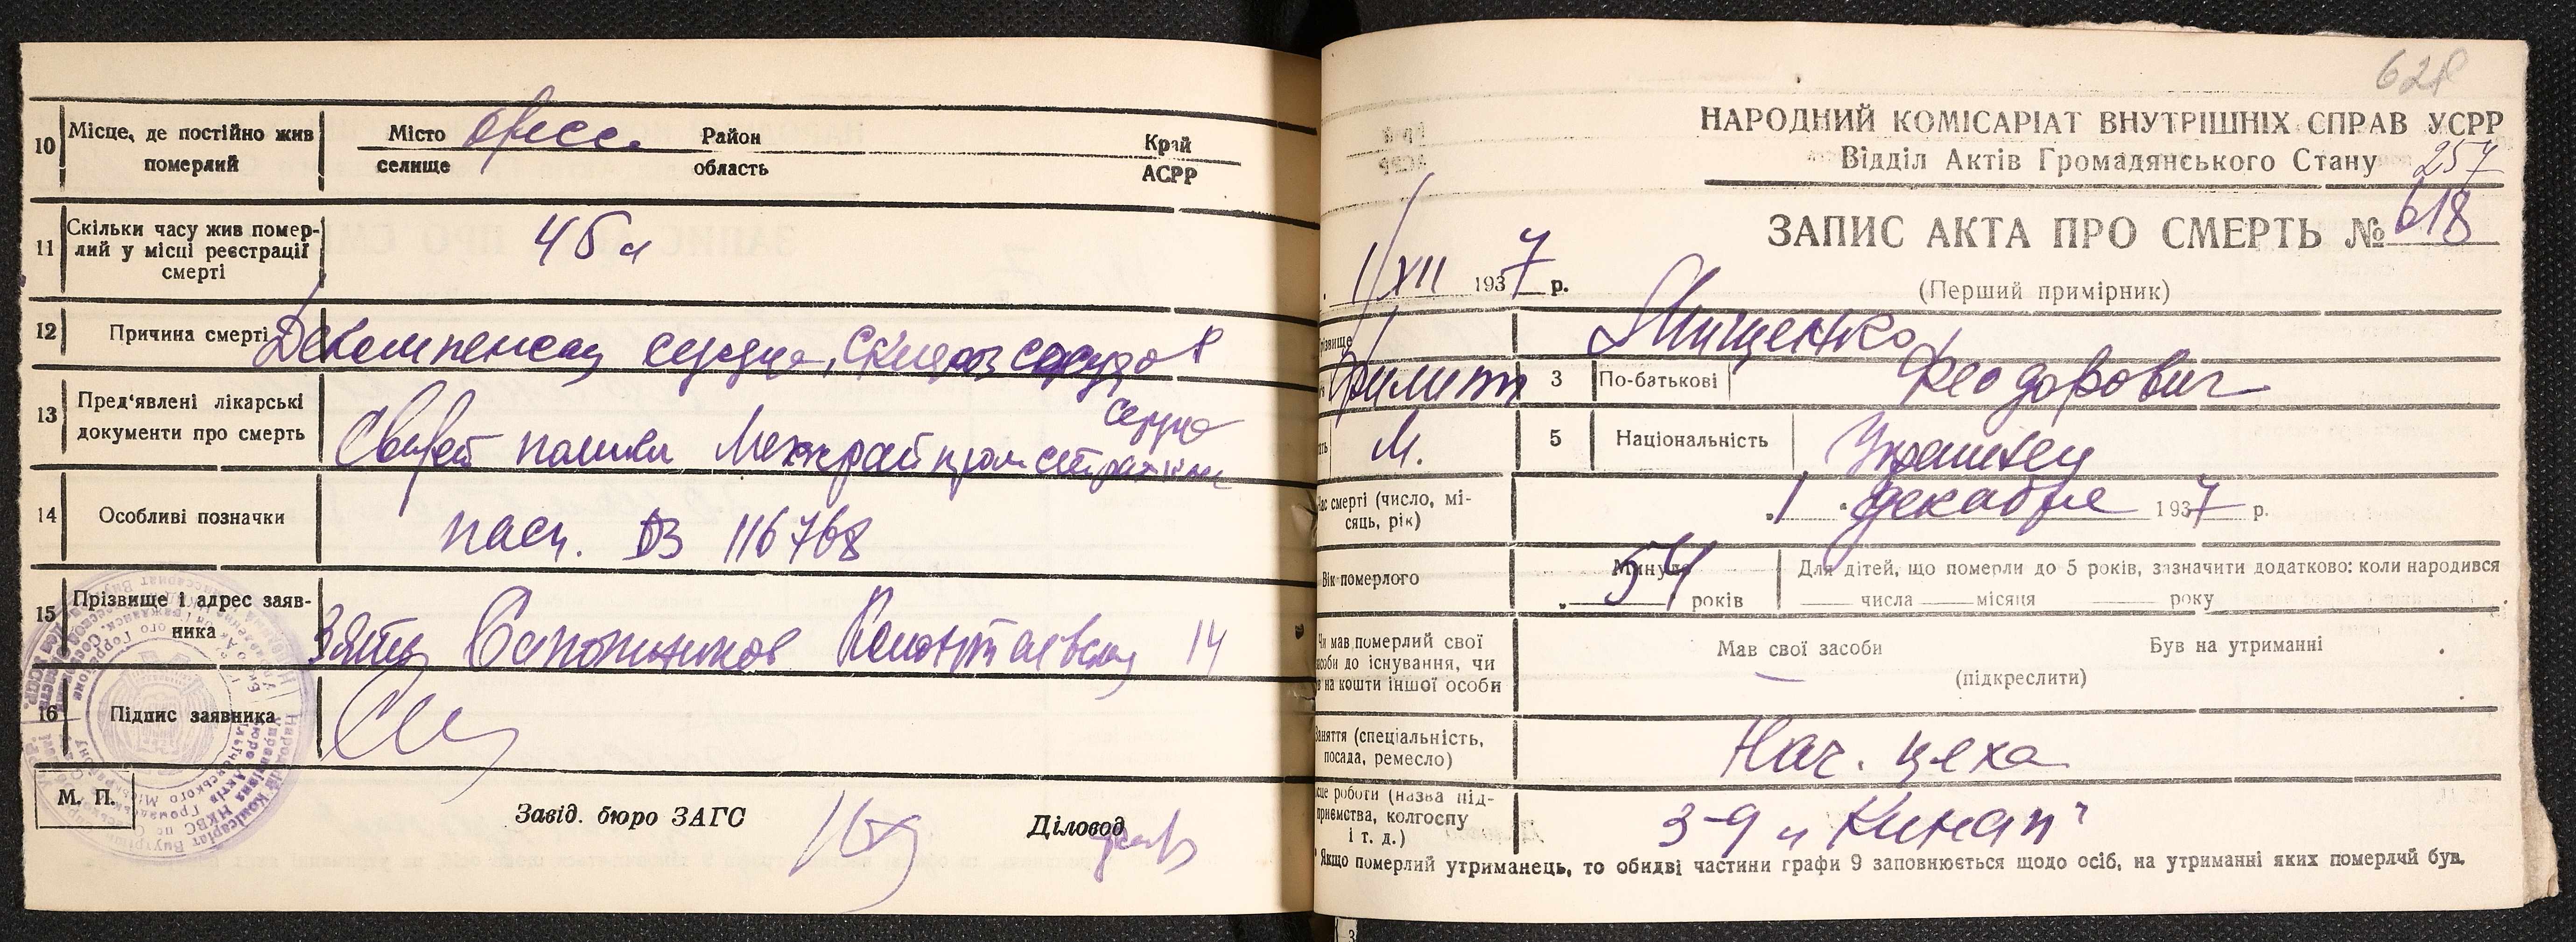 10 Місце, де постійно жив померлий
Місто Одесса Район Край
селище область АСРР
11 Скільки часу жив помер-
лий у місці реєстрації
смерті
45 л
12 Причина смерті Декомпенсац сердца, склероз сосудов
сердца
13 Пред'явлені лікарські
документи про смерть
14 Особливі позначки
пасп. 116768
15 Прізвище і адрес заяв-
ника
Зять Сапожников 14
16 Підпис заявника
М. П.
Завід. бюро ЗАГС
Діловод
628
НАРОДНИЙ КОМІСАРІАТ ВНУТРІШНІХ СПРАВ УСРР
Відділ Актів Громадянського Стану
257
ЗАПИС АКТА ПРО СМЕРТЬ № 618
1/XII 1937 р.
(Перший примірник)
Мищенко
Филипп 3 По-батькові Феодорович
М. 5 Національність Украинец
час смерті (число, мі-
сяць, рік)
1 декабря 1937 р.
Вік померлого
Минуло 54 років
Для дітей, що померли до 5 років, зазначити додатково: коли народився
числа місяця року
Чи мав померлий свої
засоби до існування, чи
на кошти іншої особи
Мав свої засоби Був на утриманні
(підкреслити)
Заняття (спеціальність,
посада, ремесло)
Нач. цеха
місце роботи (назва під-
приємства, колгоспу
і т. д.)
з-д „Кинап"
Якщо померлий утриманець, то обидві частини графи 9 заповнюється щодо осіб, на утриманні яких померлий був.